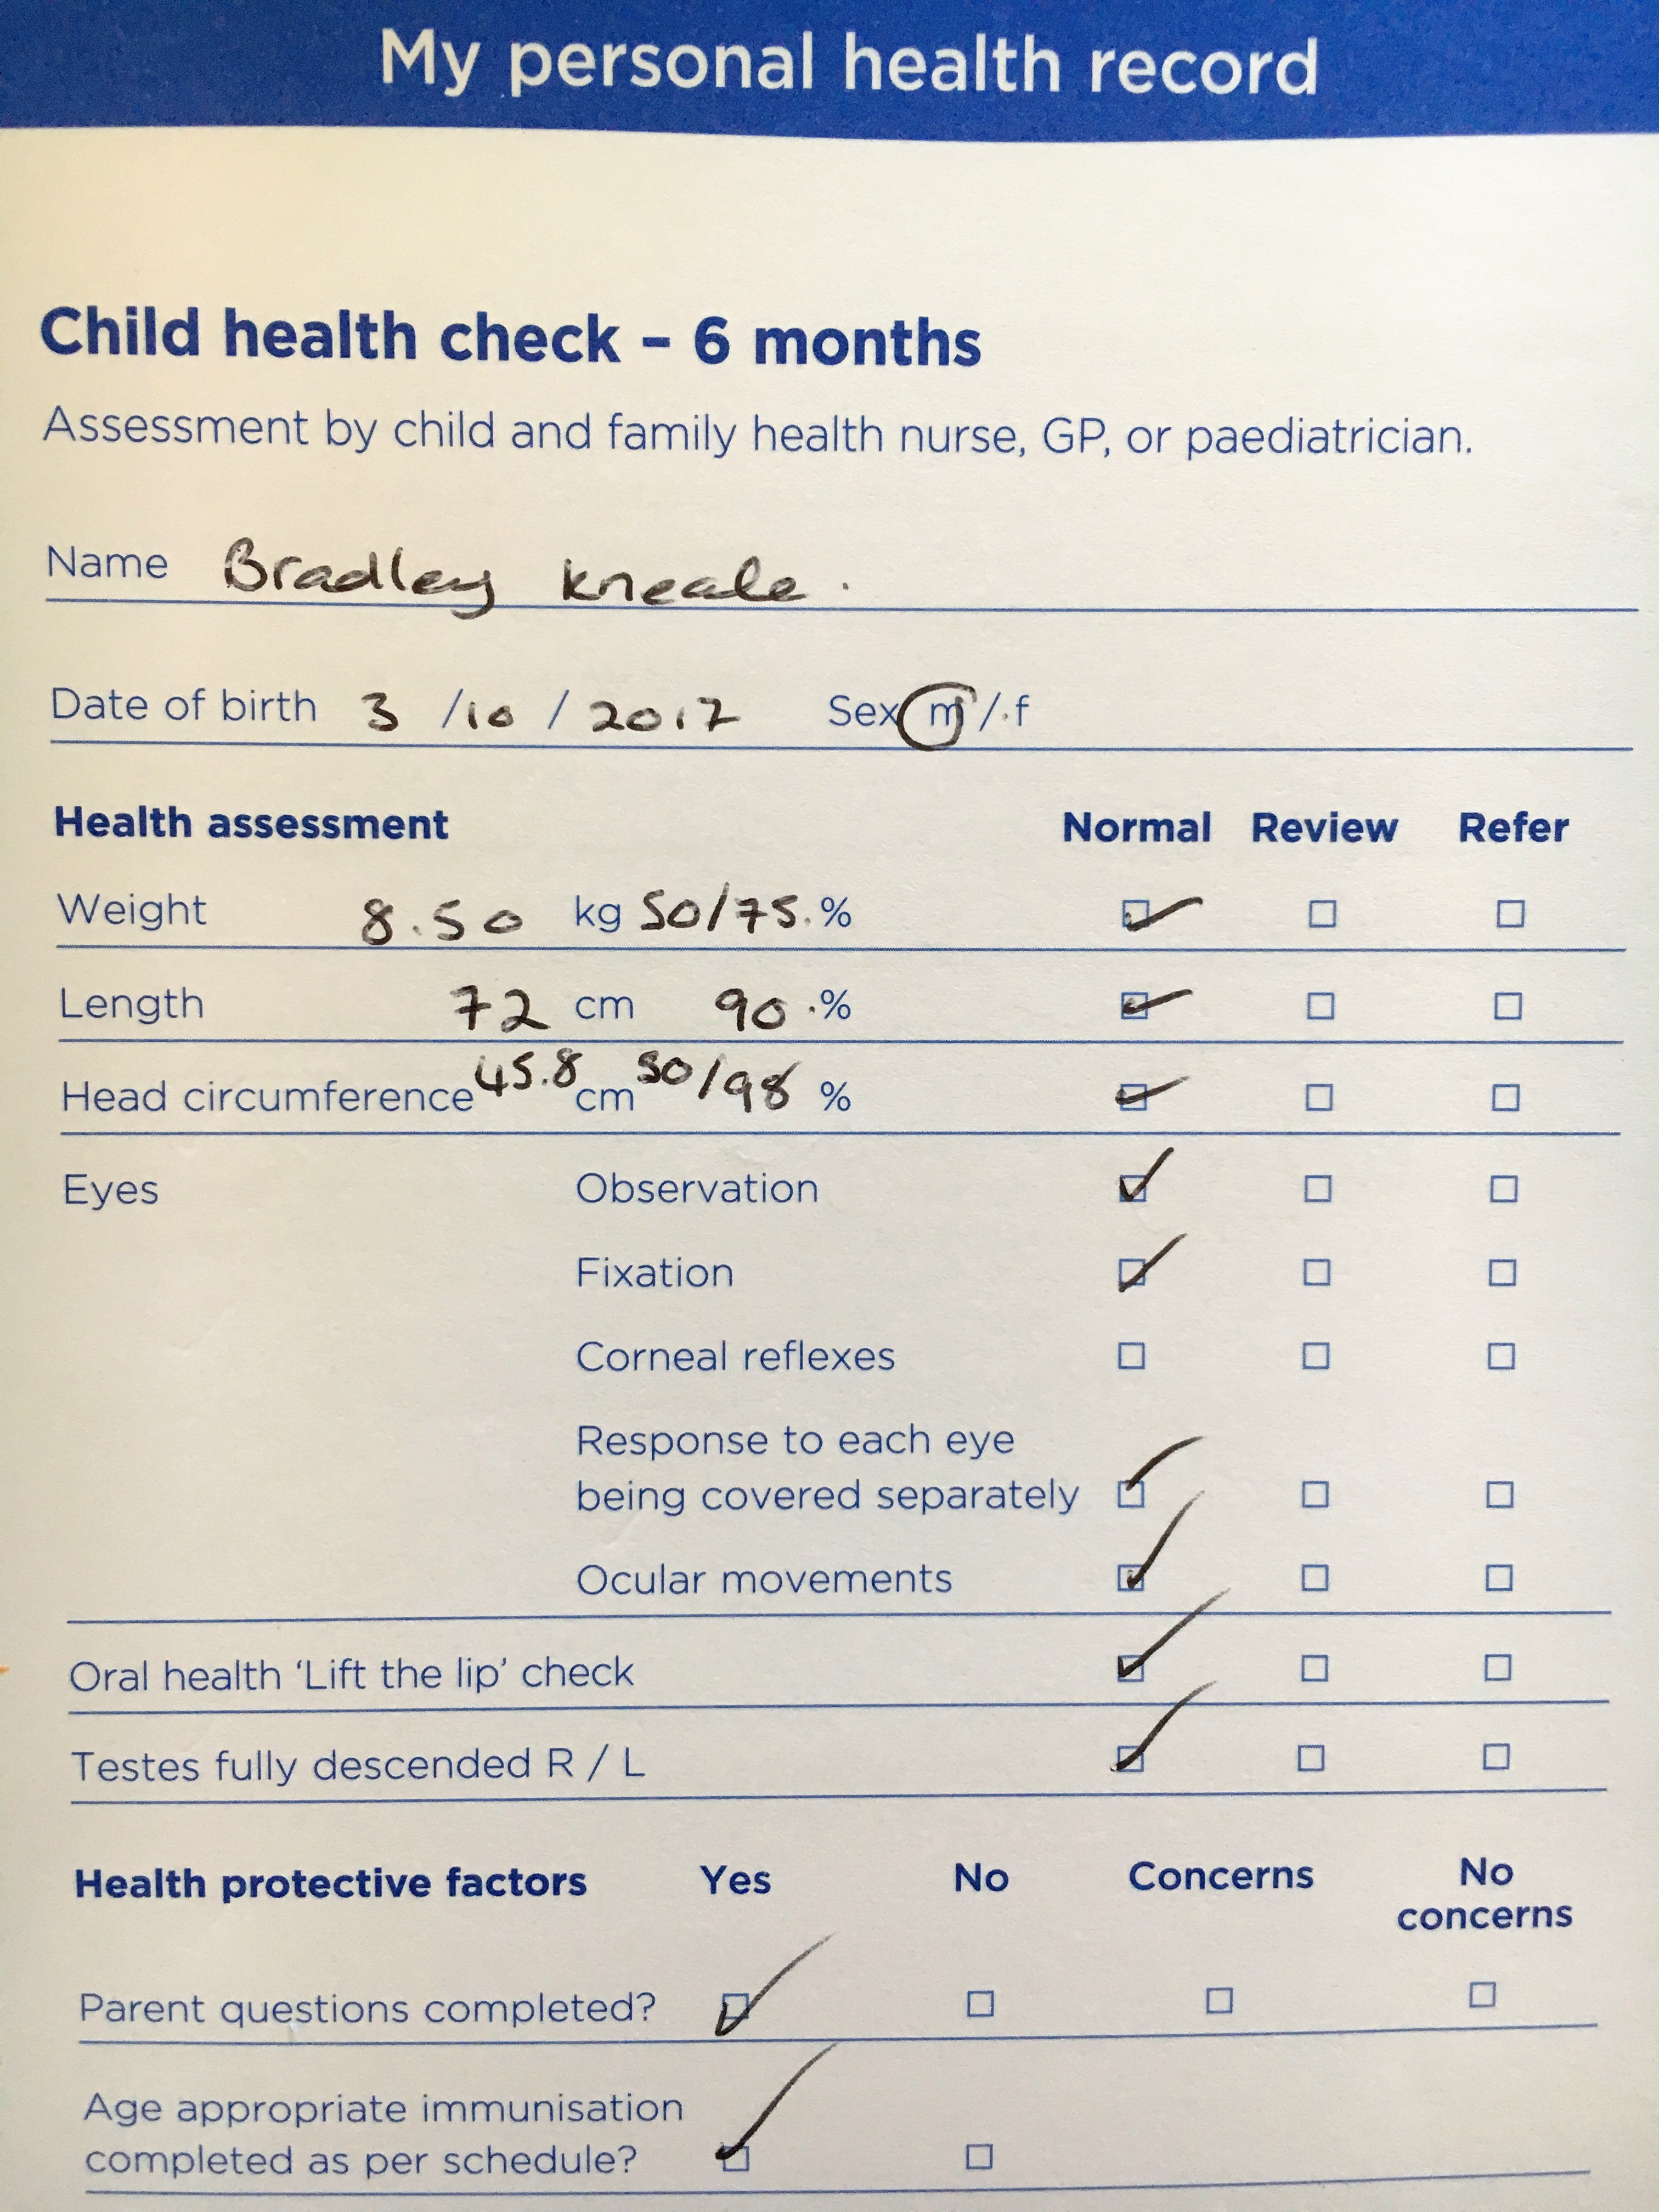 My personal health record
Child health check – 6 months
Assessment by child and family health nurse, GP, or paediatrician.
Name Bradley Kneale.
Date of birth 3 / 10 / 2017 Sex m / f
Health assessment Normal Review Refer
Weight 8.50 kg 50/75. %
Length 72 cm 90 %
Head circumference 45.8 cm 50/98 %
Eyes Observation
Fixation
Corneal reflexes
Response to each eye
being covered separately
Ocular movements
Oral health ‘Lift the lip’ check
Testes fully descended R / L
Health protective factors Yes No Concerns No
concerns
Parent questions completed?
Age appropriate immunisation
completed as per schedule?